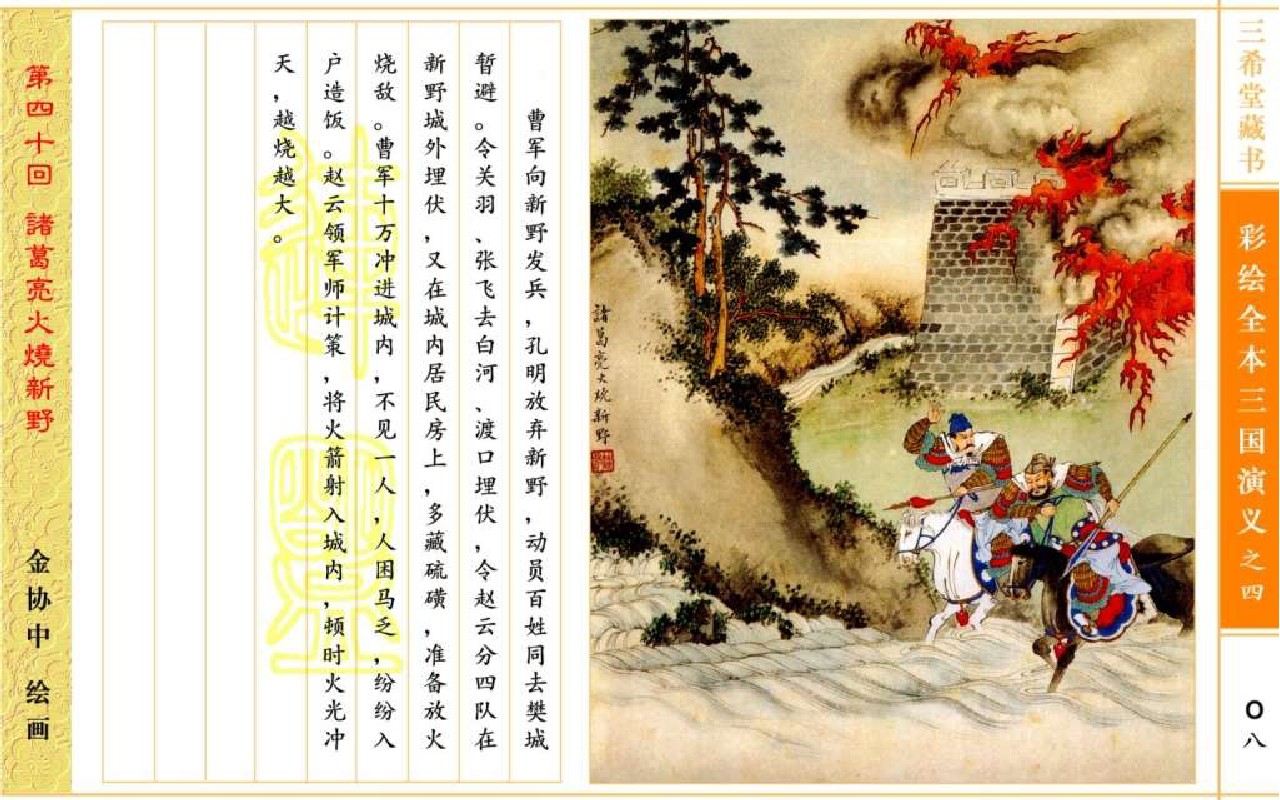 三希堂藏书
彩绘全本三国演义之四
〇八
諸葛亮火燒新野
曹军向新野发兵，孔明放弃新野，动员百姓同去樊城
暂避。令关羽、张飞去白河、渡口埋伏，令赵云分四队在
新野城外埋伏，又在城内居民房上，多藏硫磺，准备放火
烧敌。曹军十万冲进城内，不见一人，人困马乏，纷纷入
户造饭。赵云领军师计策，将火箭射入城内，顿时火光冲
天，越烧越大。
第四十回 諸葛亮火燒新野
金协中 绘画